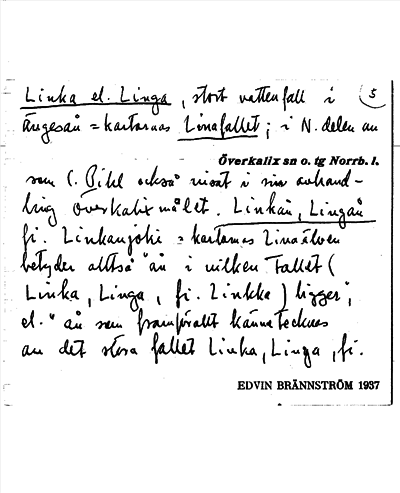 Linka el. Linga, stort vattenfall i 5
Ängesån = kartornas Linafallet; i N. delen av
Överkalix sn o. tg Norrb. l.
som C. Pihl också visat i sin avhand-
ling Överkalixmålet. Linkån, Lingån
fi. Linkanjoki = kartornas Linaälven
betyder alltså "ån i vilken Fallet (
Linka, Linga, fi. Linkka) ligger",
el. "ån som framförallt kännetecknas
av det stora fallet Linka, Linga, fi.
EDVIN BRÄNNSTRÖM 1937